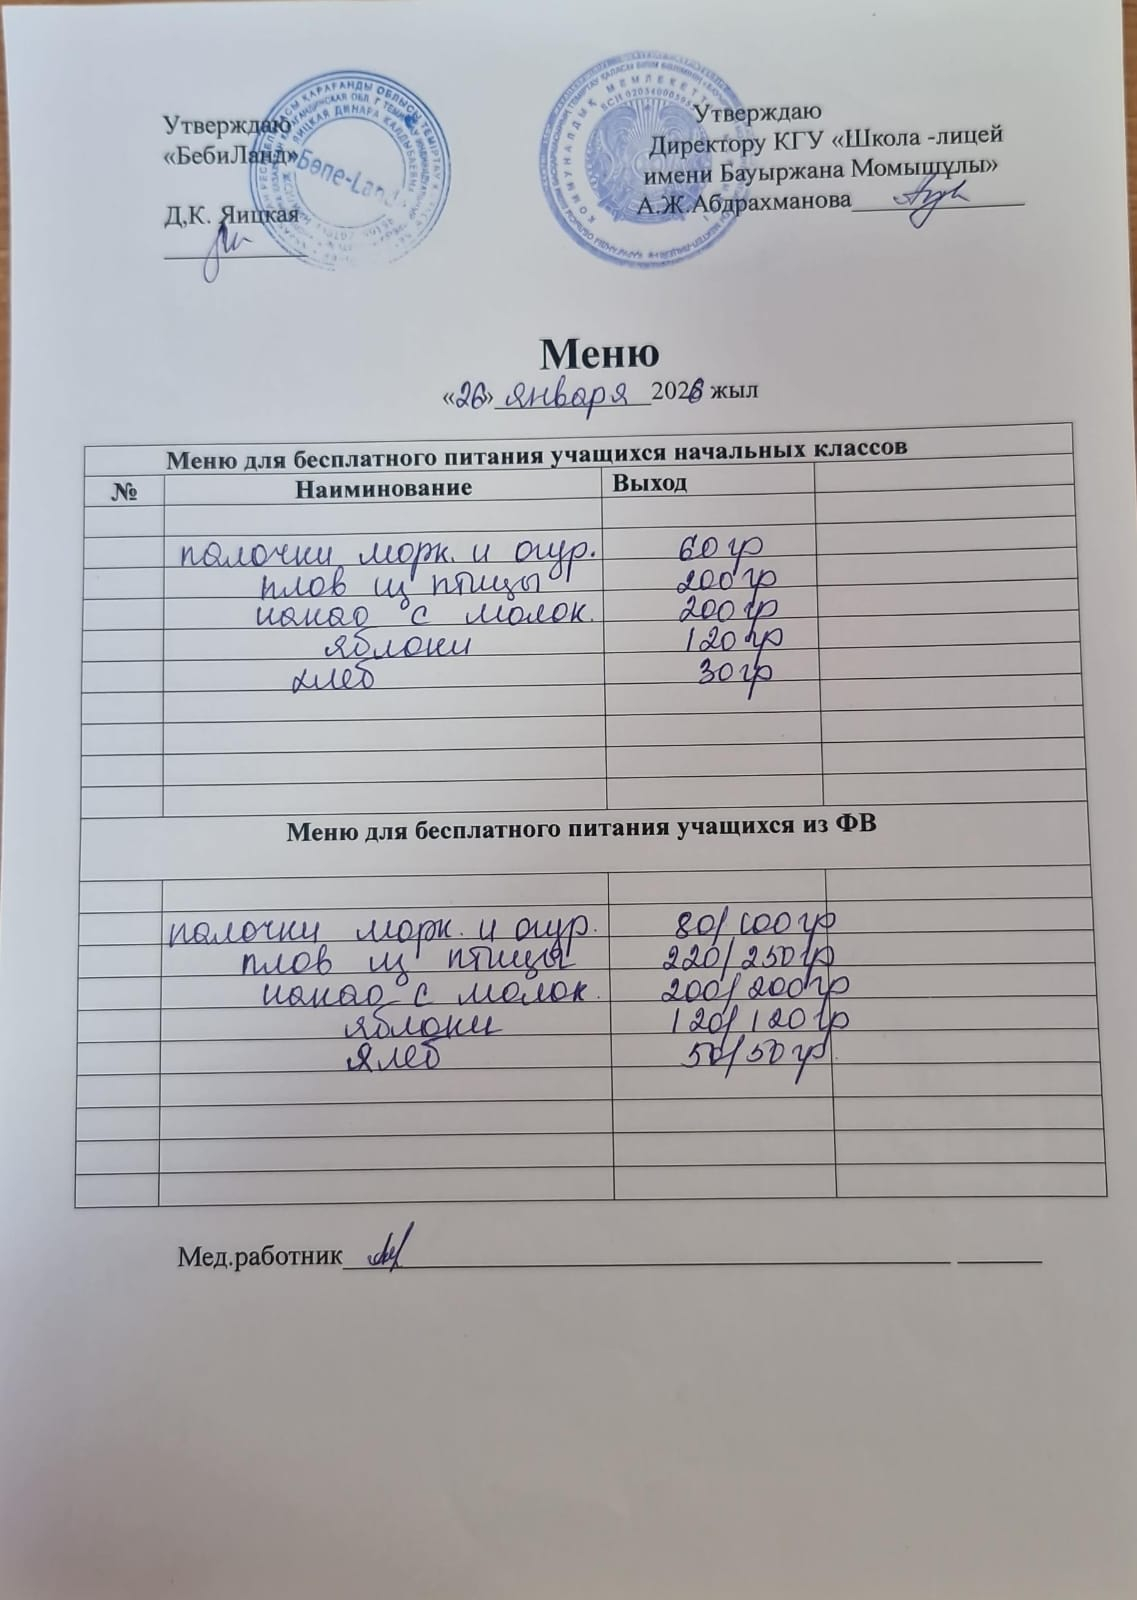 Утверждаю
«БебиЛанд»
Д,К. Яицкая
Бөпе-Land
Утверждаю
Директору КГУ «Школа -лицей
имени Бауыржана Момышұлы»
А.Ж.Абдрахманова
Меню
«26» января 2026 жыл
Меню для бесплатного питания учащихся начальных классов
№ Наиминование Выход
палочки морк. и огур. 60 гр
плов из птицы 200 гр
какао с молок. 200 гр
яблоки 120 гр
хлеб 30 гр
Меню для бесплатного питания учащихся из ФВ
палочки морк. и огур. 80/100 гр
плов из птицы 220/250 гр
какао с молок. 200/200 гр
яблоки 120/120 гр
хлеб 50/50 гр.
Мед.работник